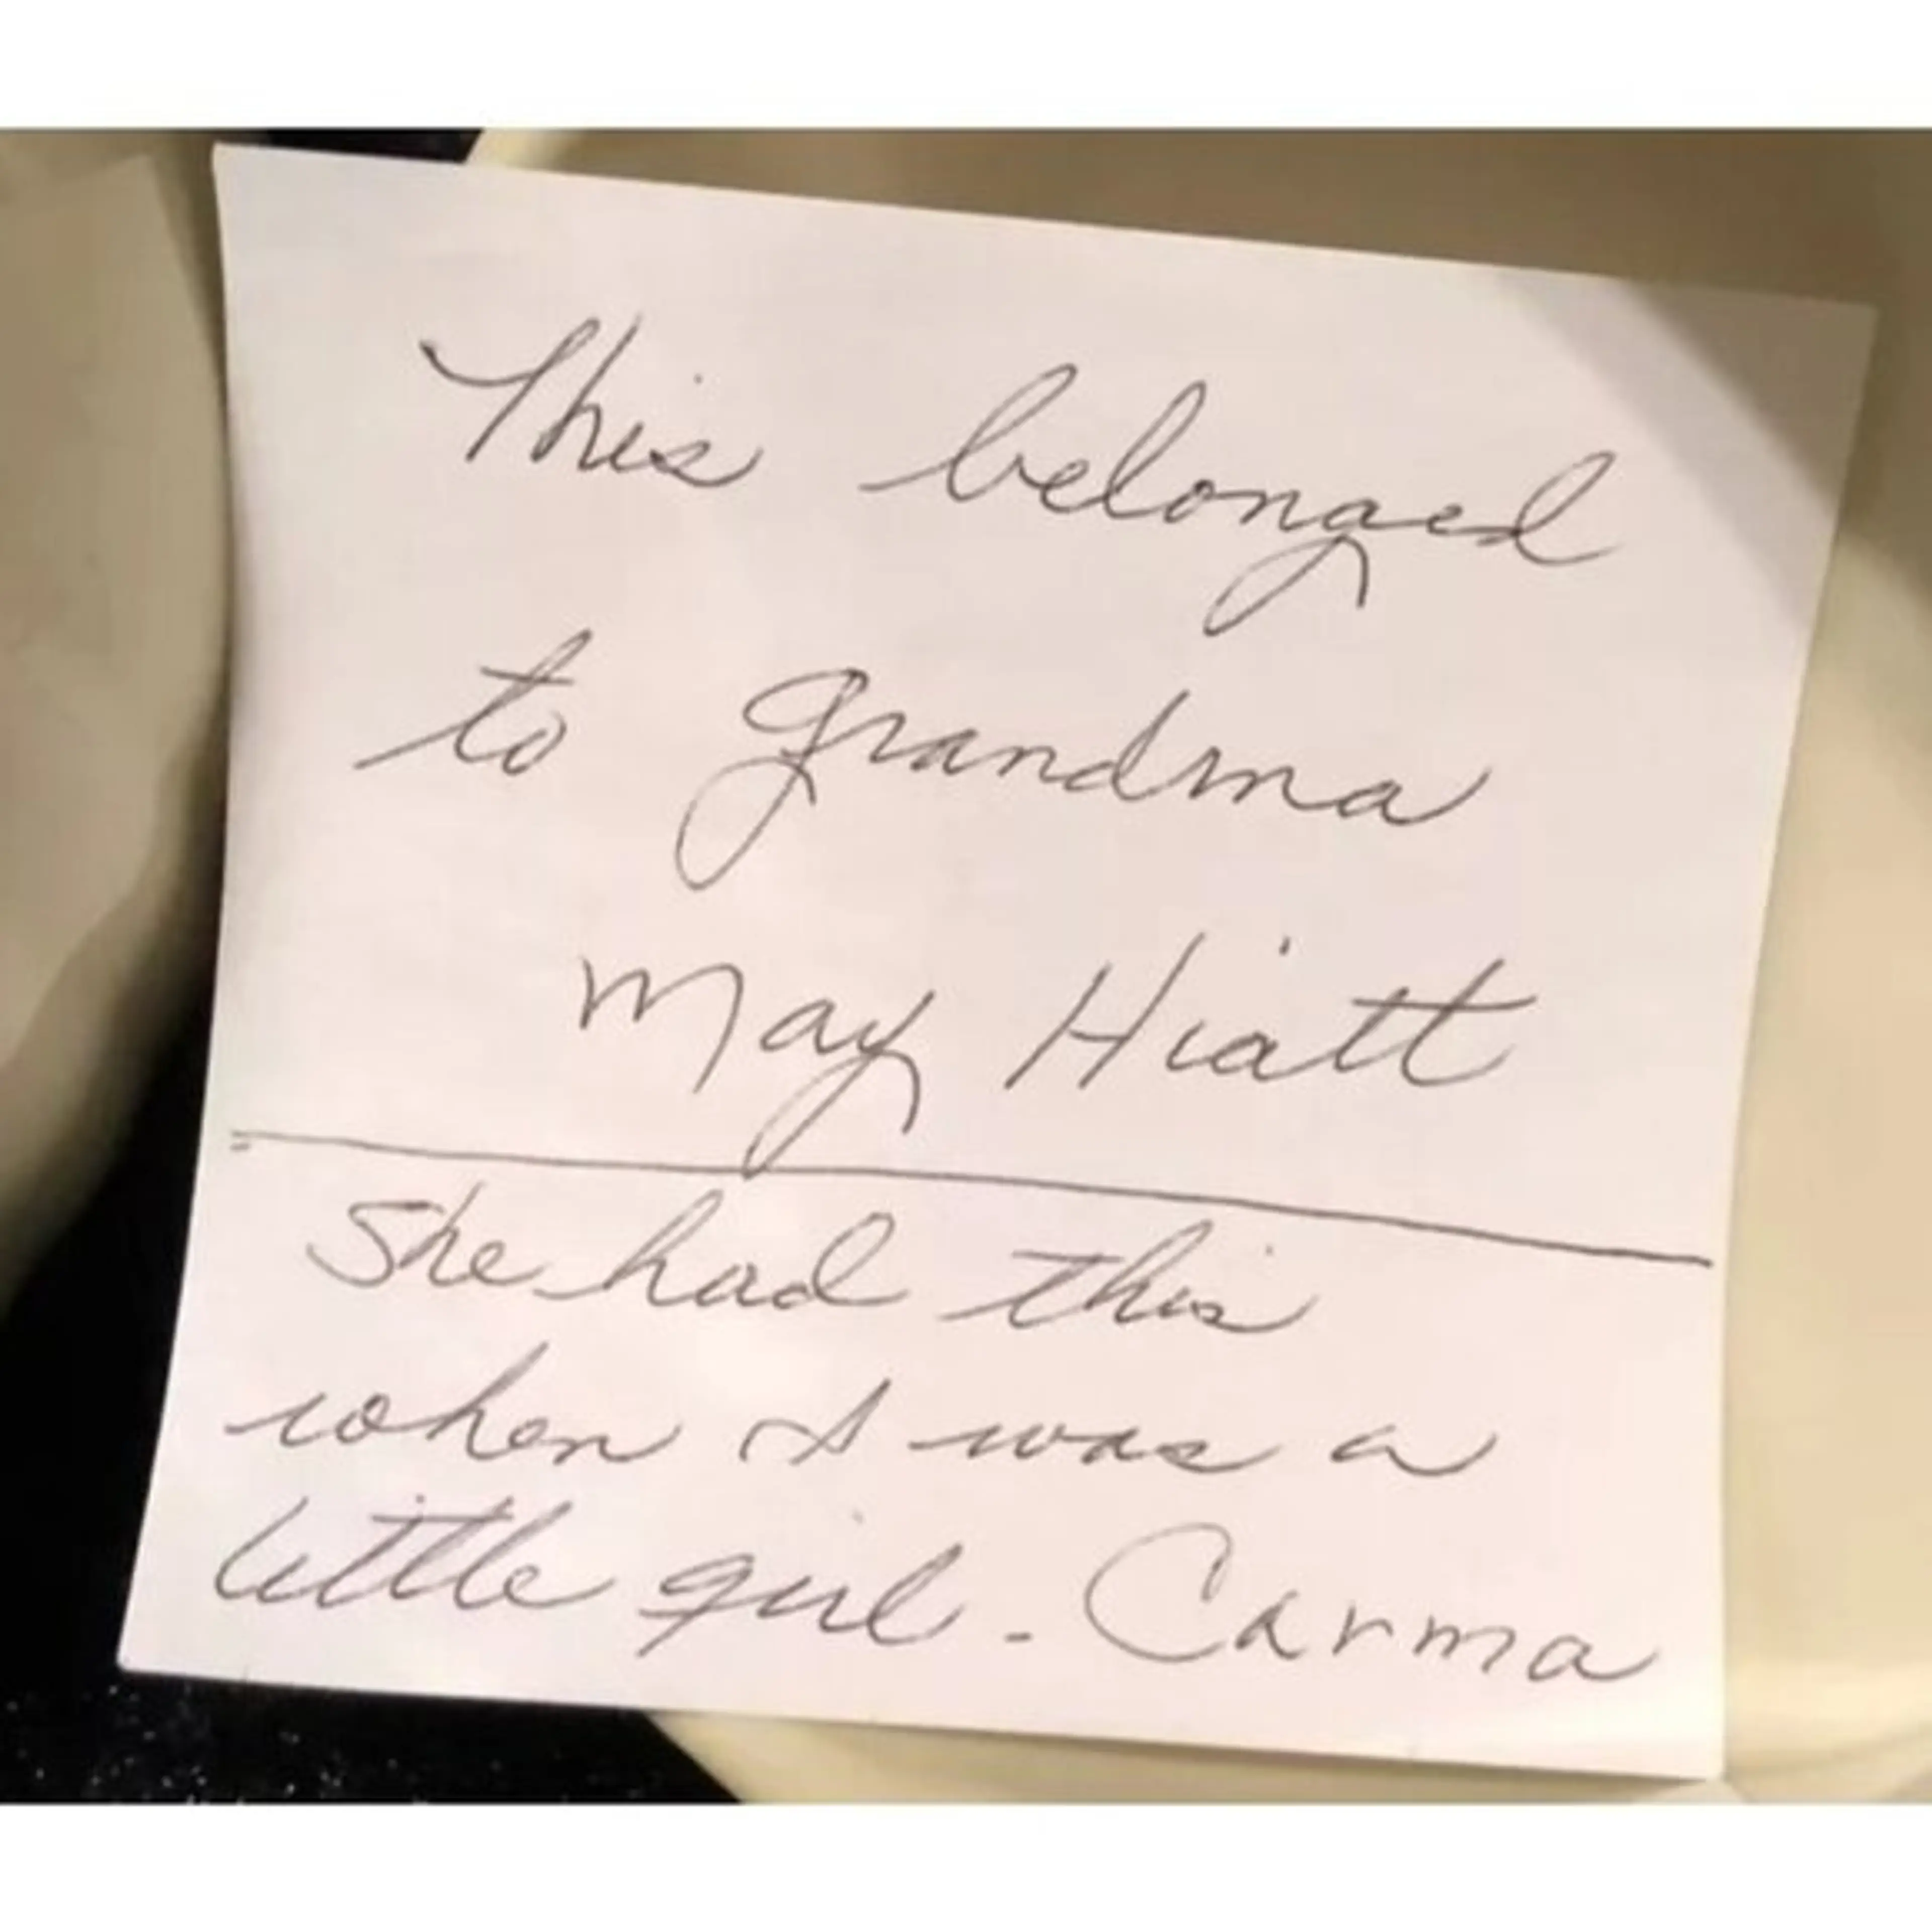 This belonged
to grandma
May Hiatt
She had this
when I was a
little girl. - Carma